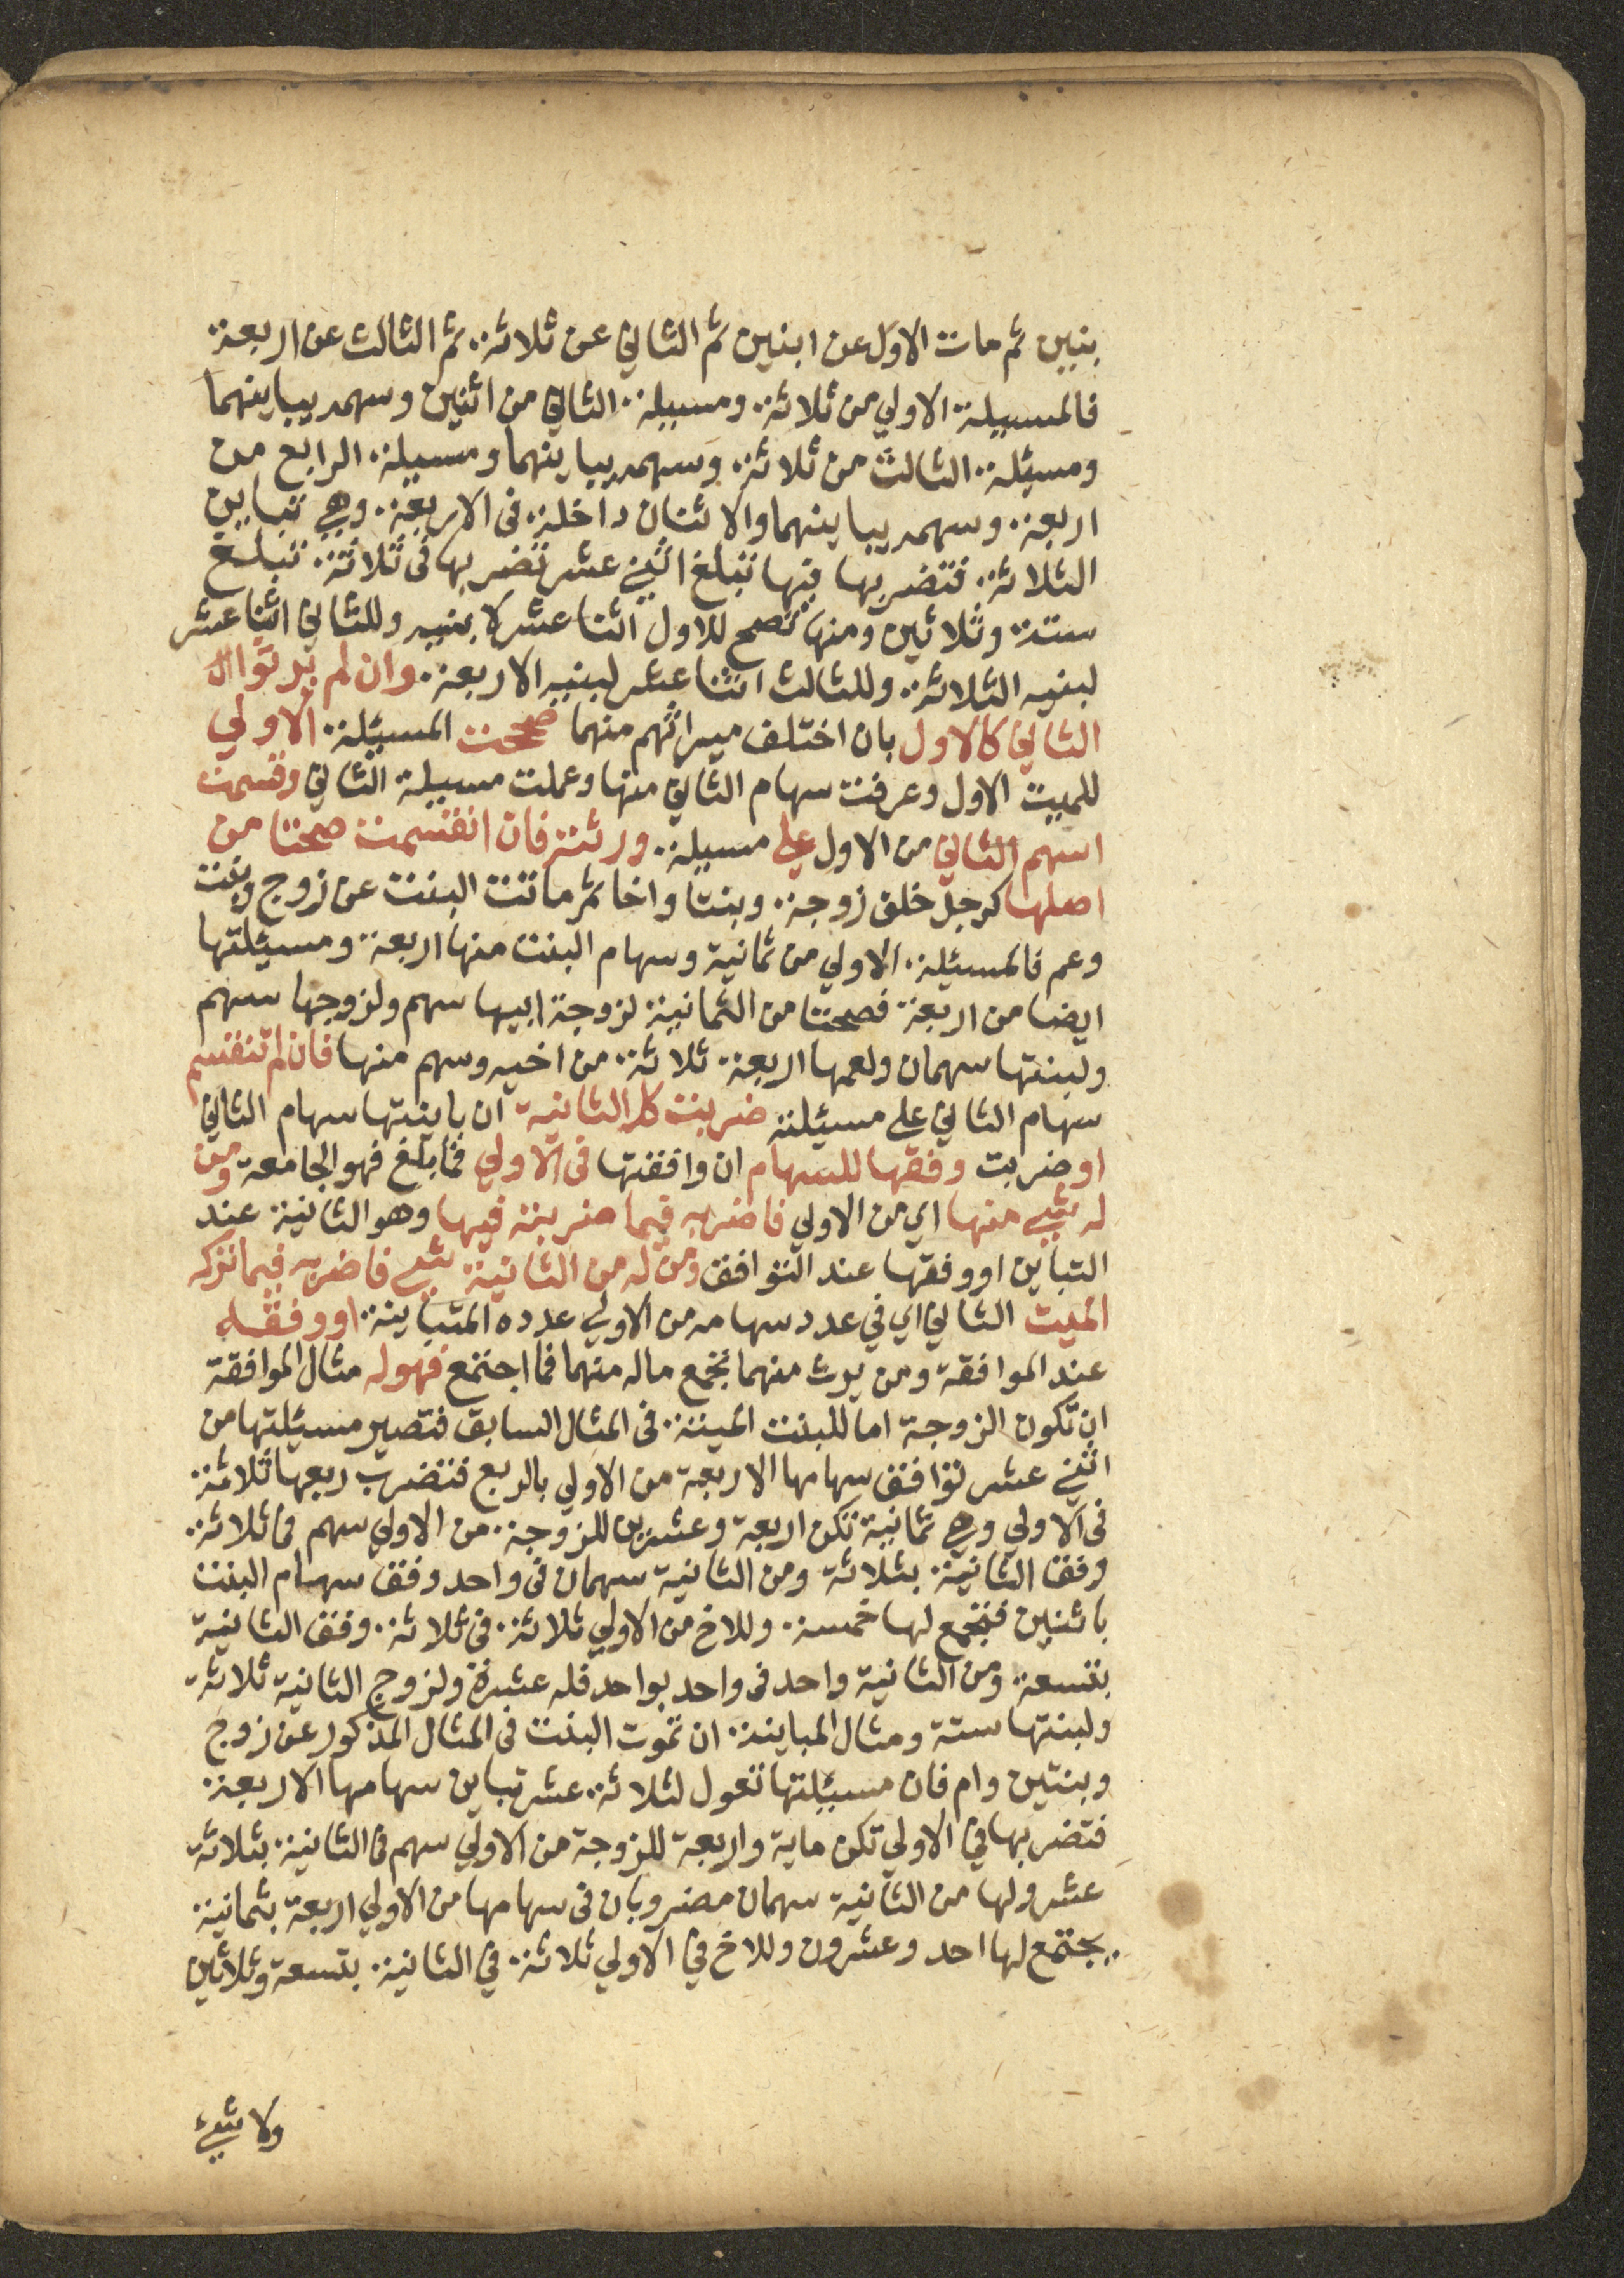 بنين ثم مات الاول عن ابنين ثم الثاني عن ثلاثة ثم الثالث عن اربعة
فالمسيلة الاولي من ثلاثة ومسيلة الثاني من اثنين وسهمه يباينهما
ومسيئلة الثالث من ثلاثة وسهمه يباينهما ومسيلة الرابع من
اربعة وسهمه يباينهما والاثنان داخلة فى الاربعة وهي تباين
الثلاثة فتضربها فيها تبلغ اثني عشر تضربها فى ثلاثة تبلغ
ستة وثلاثين ومنها تصح للاول اثنا عشر لابنيه وللثاني اثنا عشر
لبنيه الثلاثة وللثالث اثنا عشر لبنيه الاربعة وان لم يرثوا
الثاني كالاول بان اختلف ميراثهم منهما صححت المسيئلة الاولي
للميت الاول وعرفت سهام الثاني منها وعملت مسيلة الثاني وقسمت
اسهم الثاني من الاول علي مسيلة ورثته فان انقسمت صحتا من
اصلها كرجل خلف زوجة وبنتا واخا ثم ماتت البنت عن زوج وبنت
وعم فالمسيئلة الاولي من ثمانية وسهام البنت منها اربعة ومسيئلتها
ايضا من اربعة فصحتا من الثمانية لزوجة ابيها سهم ولزوجها سهم
ولبنتها سهمان ولعمها اربعة ثلاثة من اخيه وسهم منها فان لم تنقسم
سهام الثاني علي مسيئلته ضربت كل الثانية ان باينتها سهام الثاني
او ضربت وفقها للسهام ان وافقتها فى الاولي فما بلغ فهو الجامعة ومن
له شيي منها اي من الاولي فاضربه فيما ضربته فيها وهو الثانية عند
التباين او وفقها عند التوافق ومن له من الثانية شيي فاضربه فيما تركه
الميت الثاني اي في عدد سهامه من الاولي عدده المتباينة او وفقه
عند الموافقة ومن يرث منهما تجمع ماله منهما فما اجتمع فهو له مثال الموافقة
ان تكون الزوجة اما للبنت الميتة فى المثال السابق فتصير مسيئلتها من
اثني عشر توافق سهامها الاربعة من الاولي بالربع فتضرب ربعها ثلاثة
فى الاولي وهي ثمانية تكن اربعة وعشرين للزوجة من الاولي سهم فى ثلاثة
وفق الثانية بثلاثة ومن الثانية سهمان فى واحد وفق سهام البنت
باثنين فتجمع لها خمسة وللاخ من الاولي ثلاثة فى ثلاثة وفق الثانية
بتسعة ومن الثانية واحد فى واحد بواحد فله عشرة ولزوج الثانية ثلاثة
ولبنتها ستة ومثال المباينة ان تموت البنت فى المثال المذكور عن زوج
وبنتين وام فان مسيئلتها تعول لثلاثة عشر تباين سهامها الاربعة
فتضربها في الاولي تكن ماية واربعة للزوجة من الاولي سهم فى الثانية بثلاثة
عشر ولها من الثانية سهمان مضروبان فى سهامها من الاولي اربعة بثمانية
يجتمع لها احد وعشرون وللاخ في الاولي ثلاثة في الثانية بتسعة وثلاثين
ولا شيئ